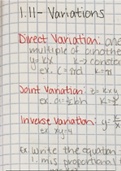 1.11 - Variations
Direct Variation: one
multiple of another
y = kx k → constant
ex. c = πd k = π
Joint Variation: z = kxy
ex. a = ½bh k = ½
Inverse Variation: y = k/x
xy = k
ex. Write the equation
1. m is proportional